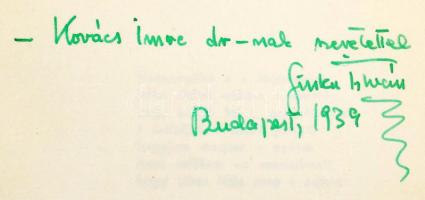 – Kovács Imre dr-nak szeretettel
István
Budapest, 1939